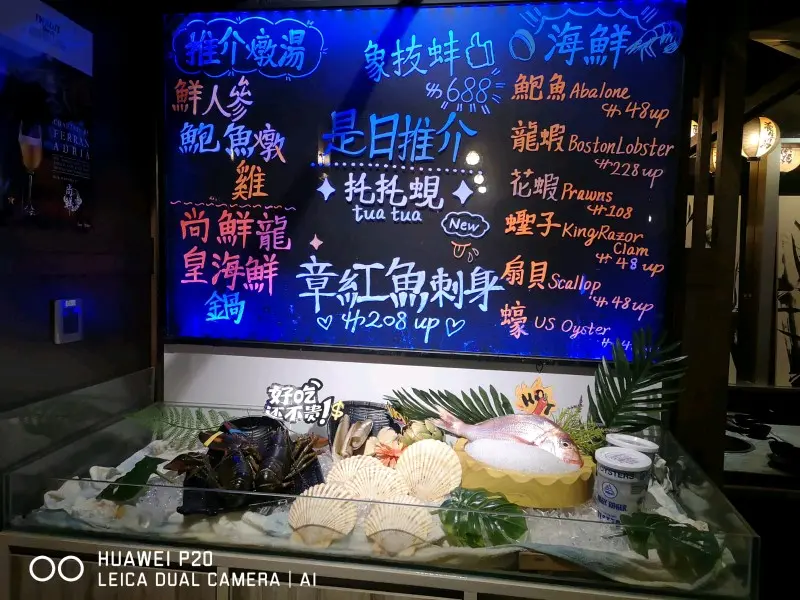 推介燉湯
鮮人參
鮑魚燉
雞
尚鮮龍
皇海鮮
鍋
象拔蚌
#688
是日推介
扥扥蜆
tua tua
New
章紅魚刺身
#208 up
海鮮
鮑魚 Abalone
#48up
龍蝦 Boston Lobster
#228 up
花蝦 Prawns
#108
蟶子 King Razor
Clam
#48 up
扇貝 Scallop
#48up
蠔 US Oyster
好吃
还不贵!$
HOT
OYSTERS
FERRAN
ADRIA
HUAWEI P20
LEICA DUAL CAMERA | AI